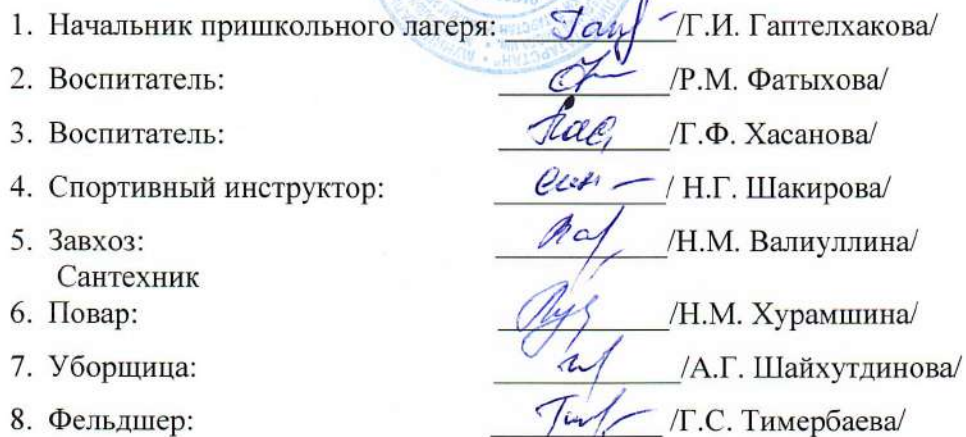 1. Начальник пришкольного лагеря: /Г.И. Гаптелхакова/
2. Воспитатель: /Р.М. Фатыхова/
3. Воспитатель: /Г.Ф. Хасанова/
4. Спортивный инструктор: / Н.Г. Шакирова/
5. Завхоз: /Н.М. Валиуллина/
Сантехник
6. Повар: /Н.М. Хурамшина/
7. Уборщица: /А.Г. Шайхутдинова/
8. Фельдшер: /Г.С. Тимербаева/